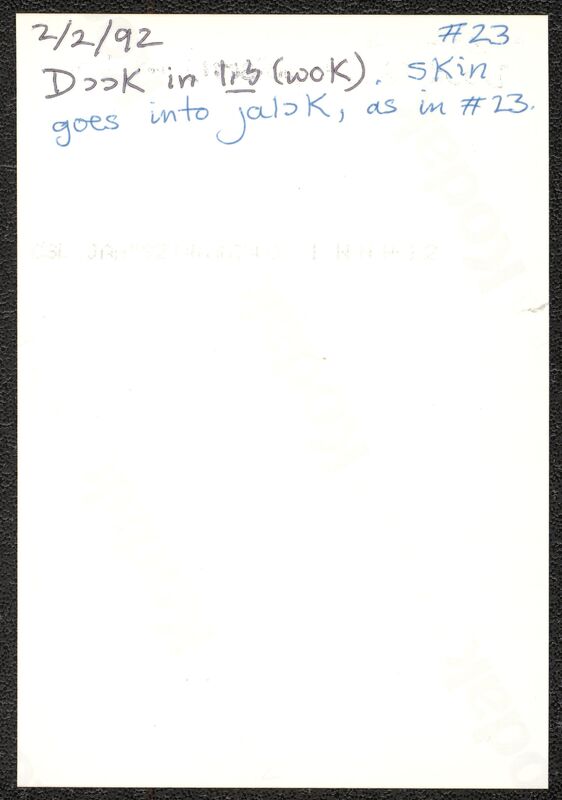 2/2/92 #23
Dɔɔk in (wok). skin
goes into jalɔk, as in #23.